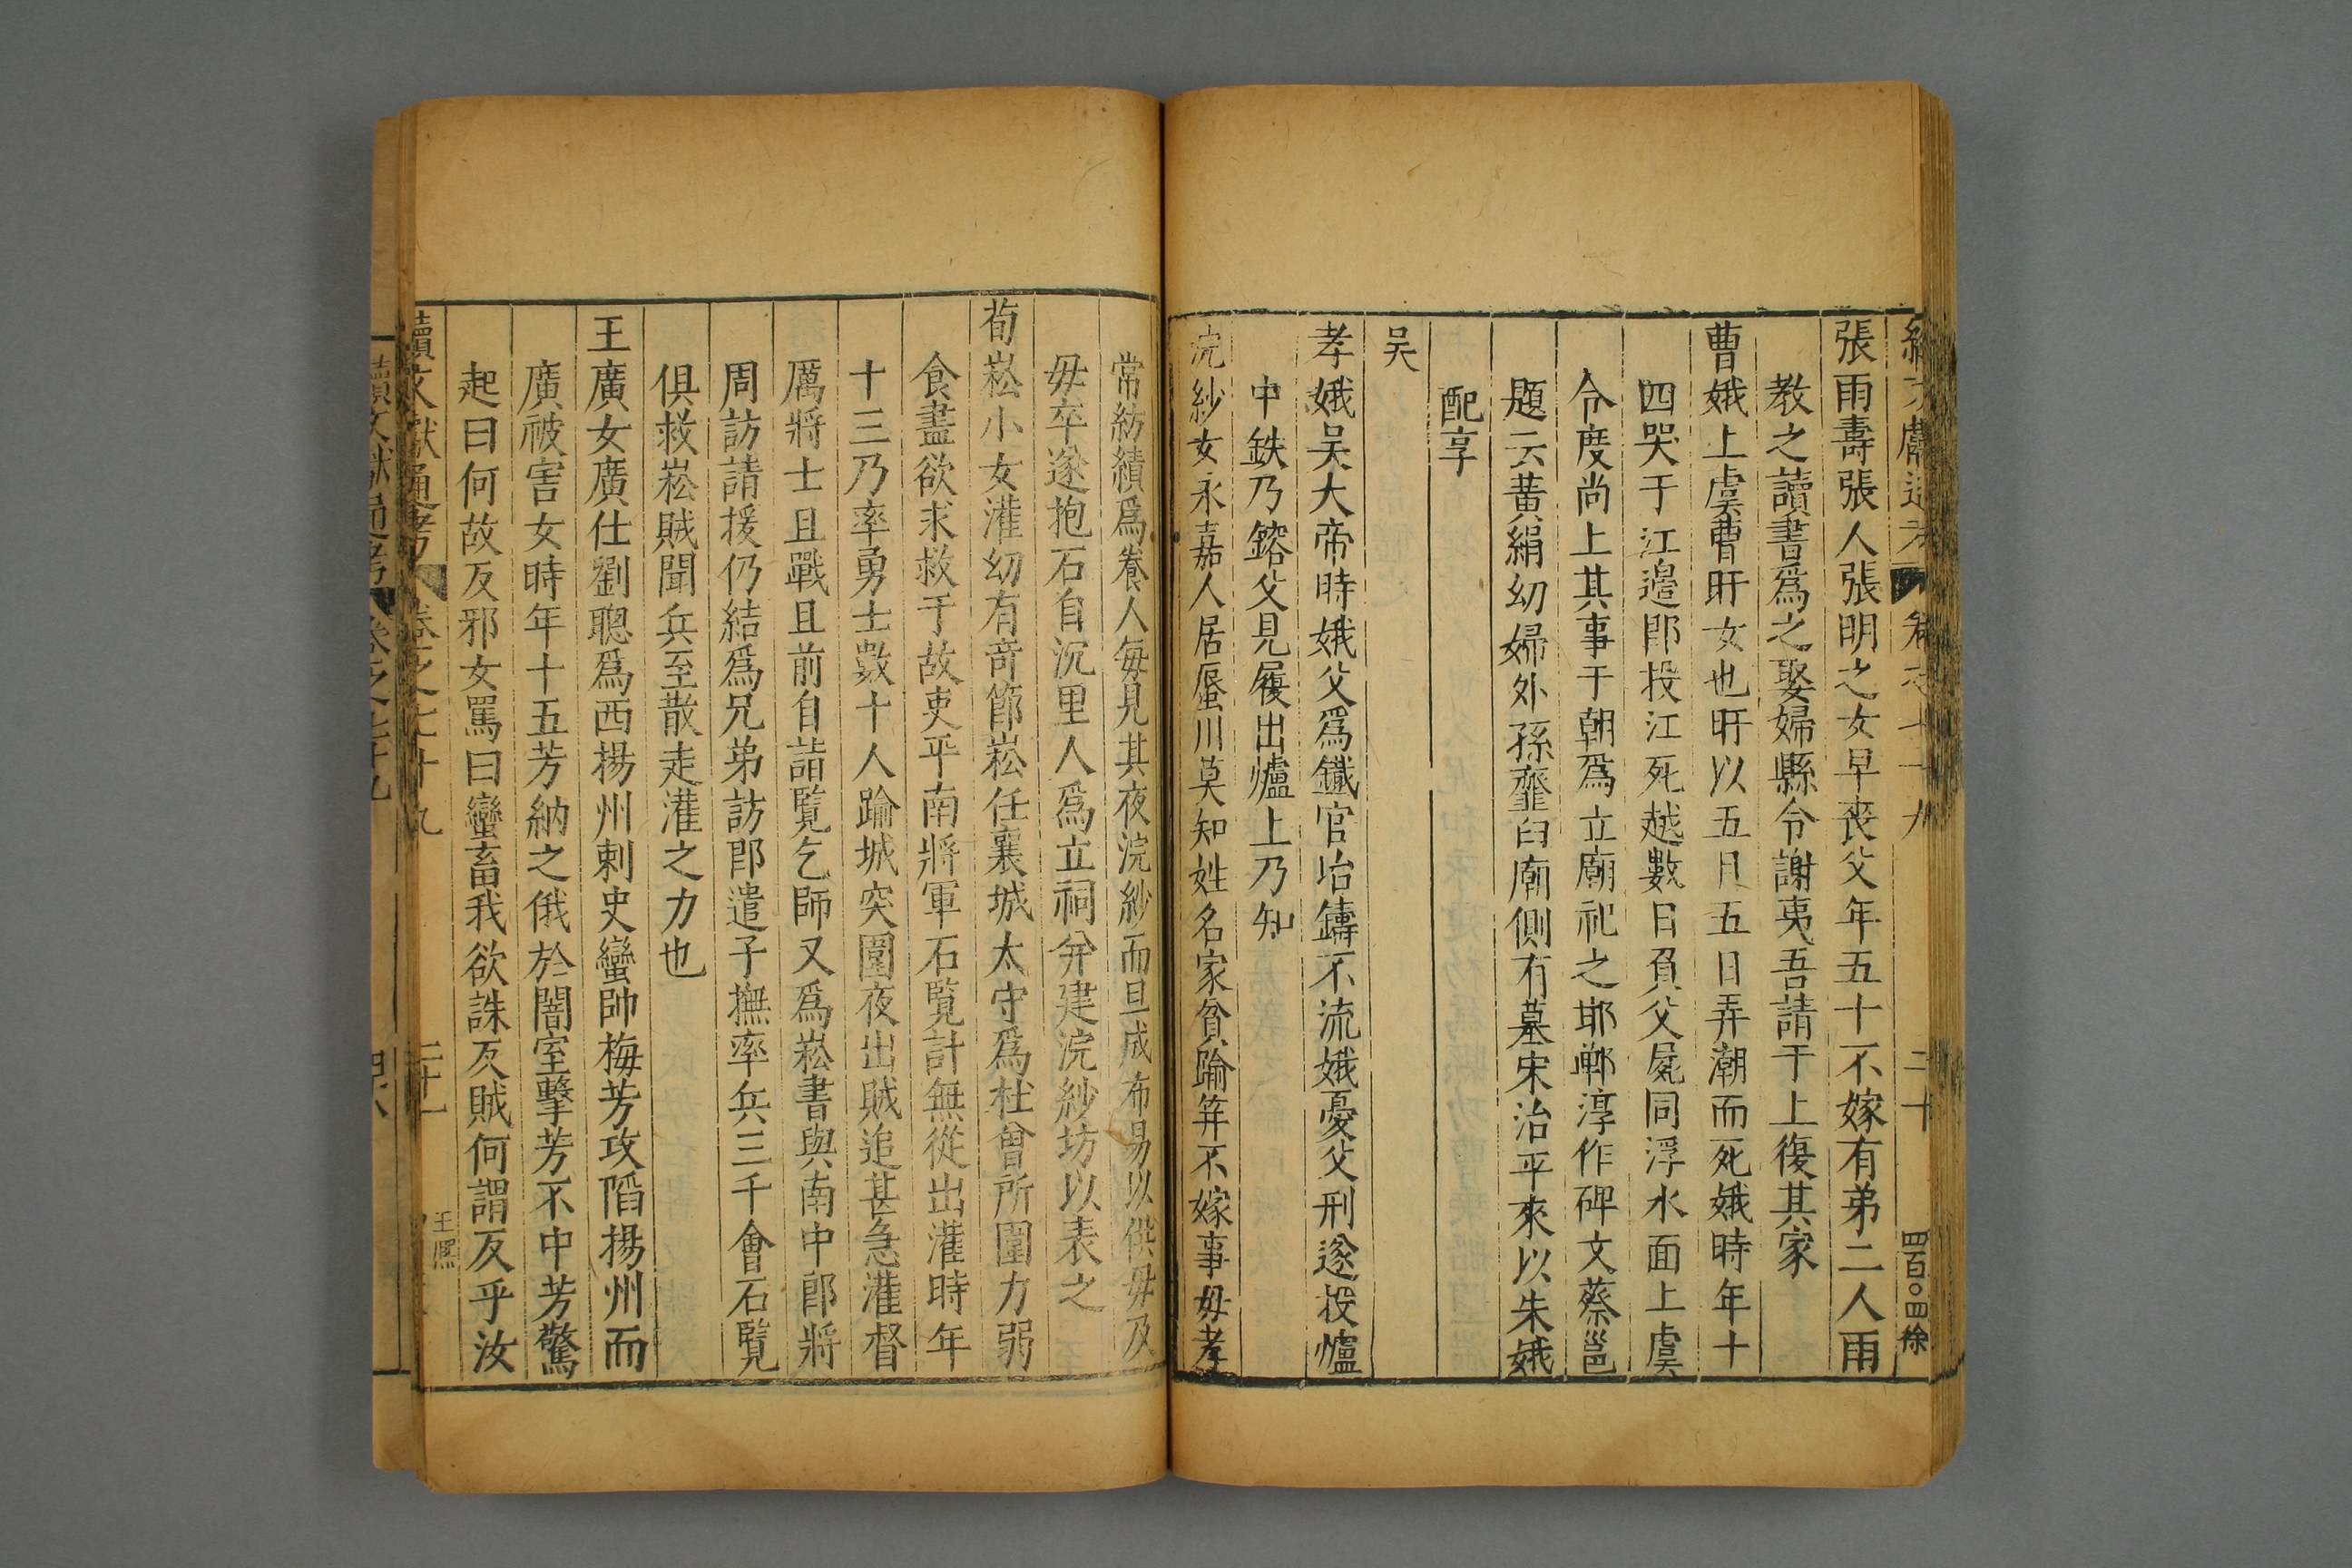 張雨壽張人張明之女早喪父年五十不嫁有弟二人雨
教之讀書爲之娶婦縣令謝夷吾請于上復其家
曹娥上虞曹旴女也旴以五月五日弄潮而死娥時年十
四哭于江邉即投江死越數日負父屍同浮水面上虞
令度尚上其事于朝爲立廟祀之邯鄲淳作碑文蔡邕
題云黃絹幼婦外孫虀臼廟側有墓宋治平來以朱娥
配享
吴
孝娥吴大帝時娥父爲鐵官冶鑄不流娥憂父刑遂投爐
中鉄乃鎔父見履出爐上乃知
浣紗女永嘉人居蜃川莫知姓名家貧踰笄不嫁事毋孝
常紡績爲養人每見其夜浣紗而旦成布易以供毋及
毋卒遂抱石自沉里人爲立祠并建浣紗坊以表之
荀崧小女灌幼有竒節崧任襄城太守爲杜曾所圍力弱
食盡欲求救于故吏平南將軍石覽計無從出灌時年
十三乃率勇士數十人踰城突圍夜出賊追甚急灌督
厲將士且戰且前自詣覽乞師又爲崧書與南中郎將
周訪請援仍結爲兄弟訪即遣子撫率兵三千會石覽
俱救崧賊聞兵至散走灌之力也
王廣女廣仕劉聰爲西揚州刺史蠻帥梅芳攻䧟揚州而
廣被害女時年十五芳納之俄於闇室擊芳不中芳驚
起曰何故反邪女罵曰蠻畜我欲誅反賊何謂反乎汝
續文獻通考 卷之七十九 二十一